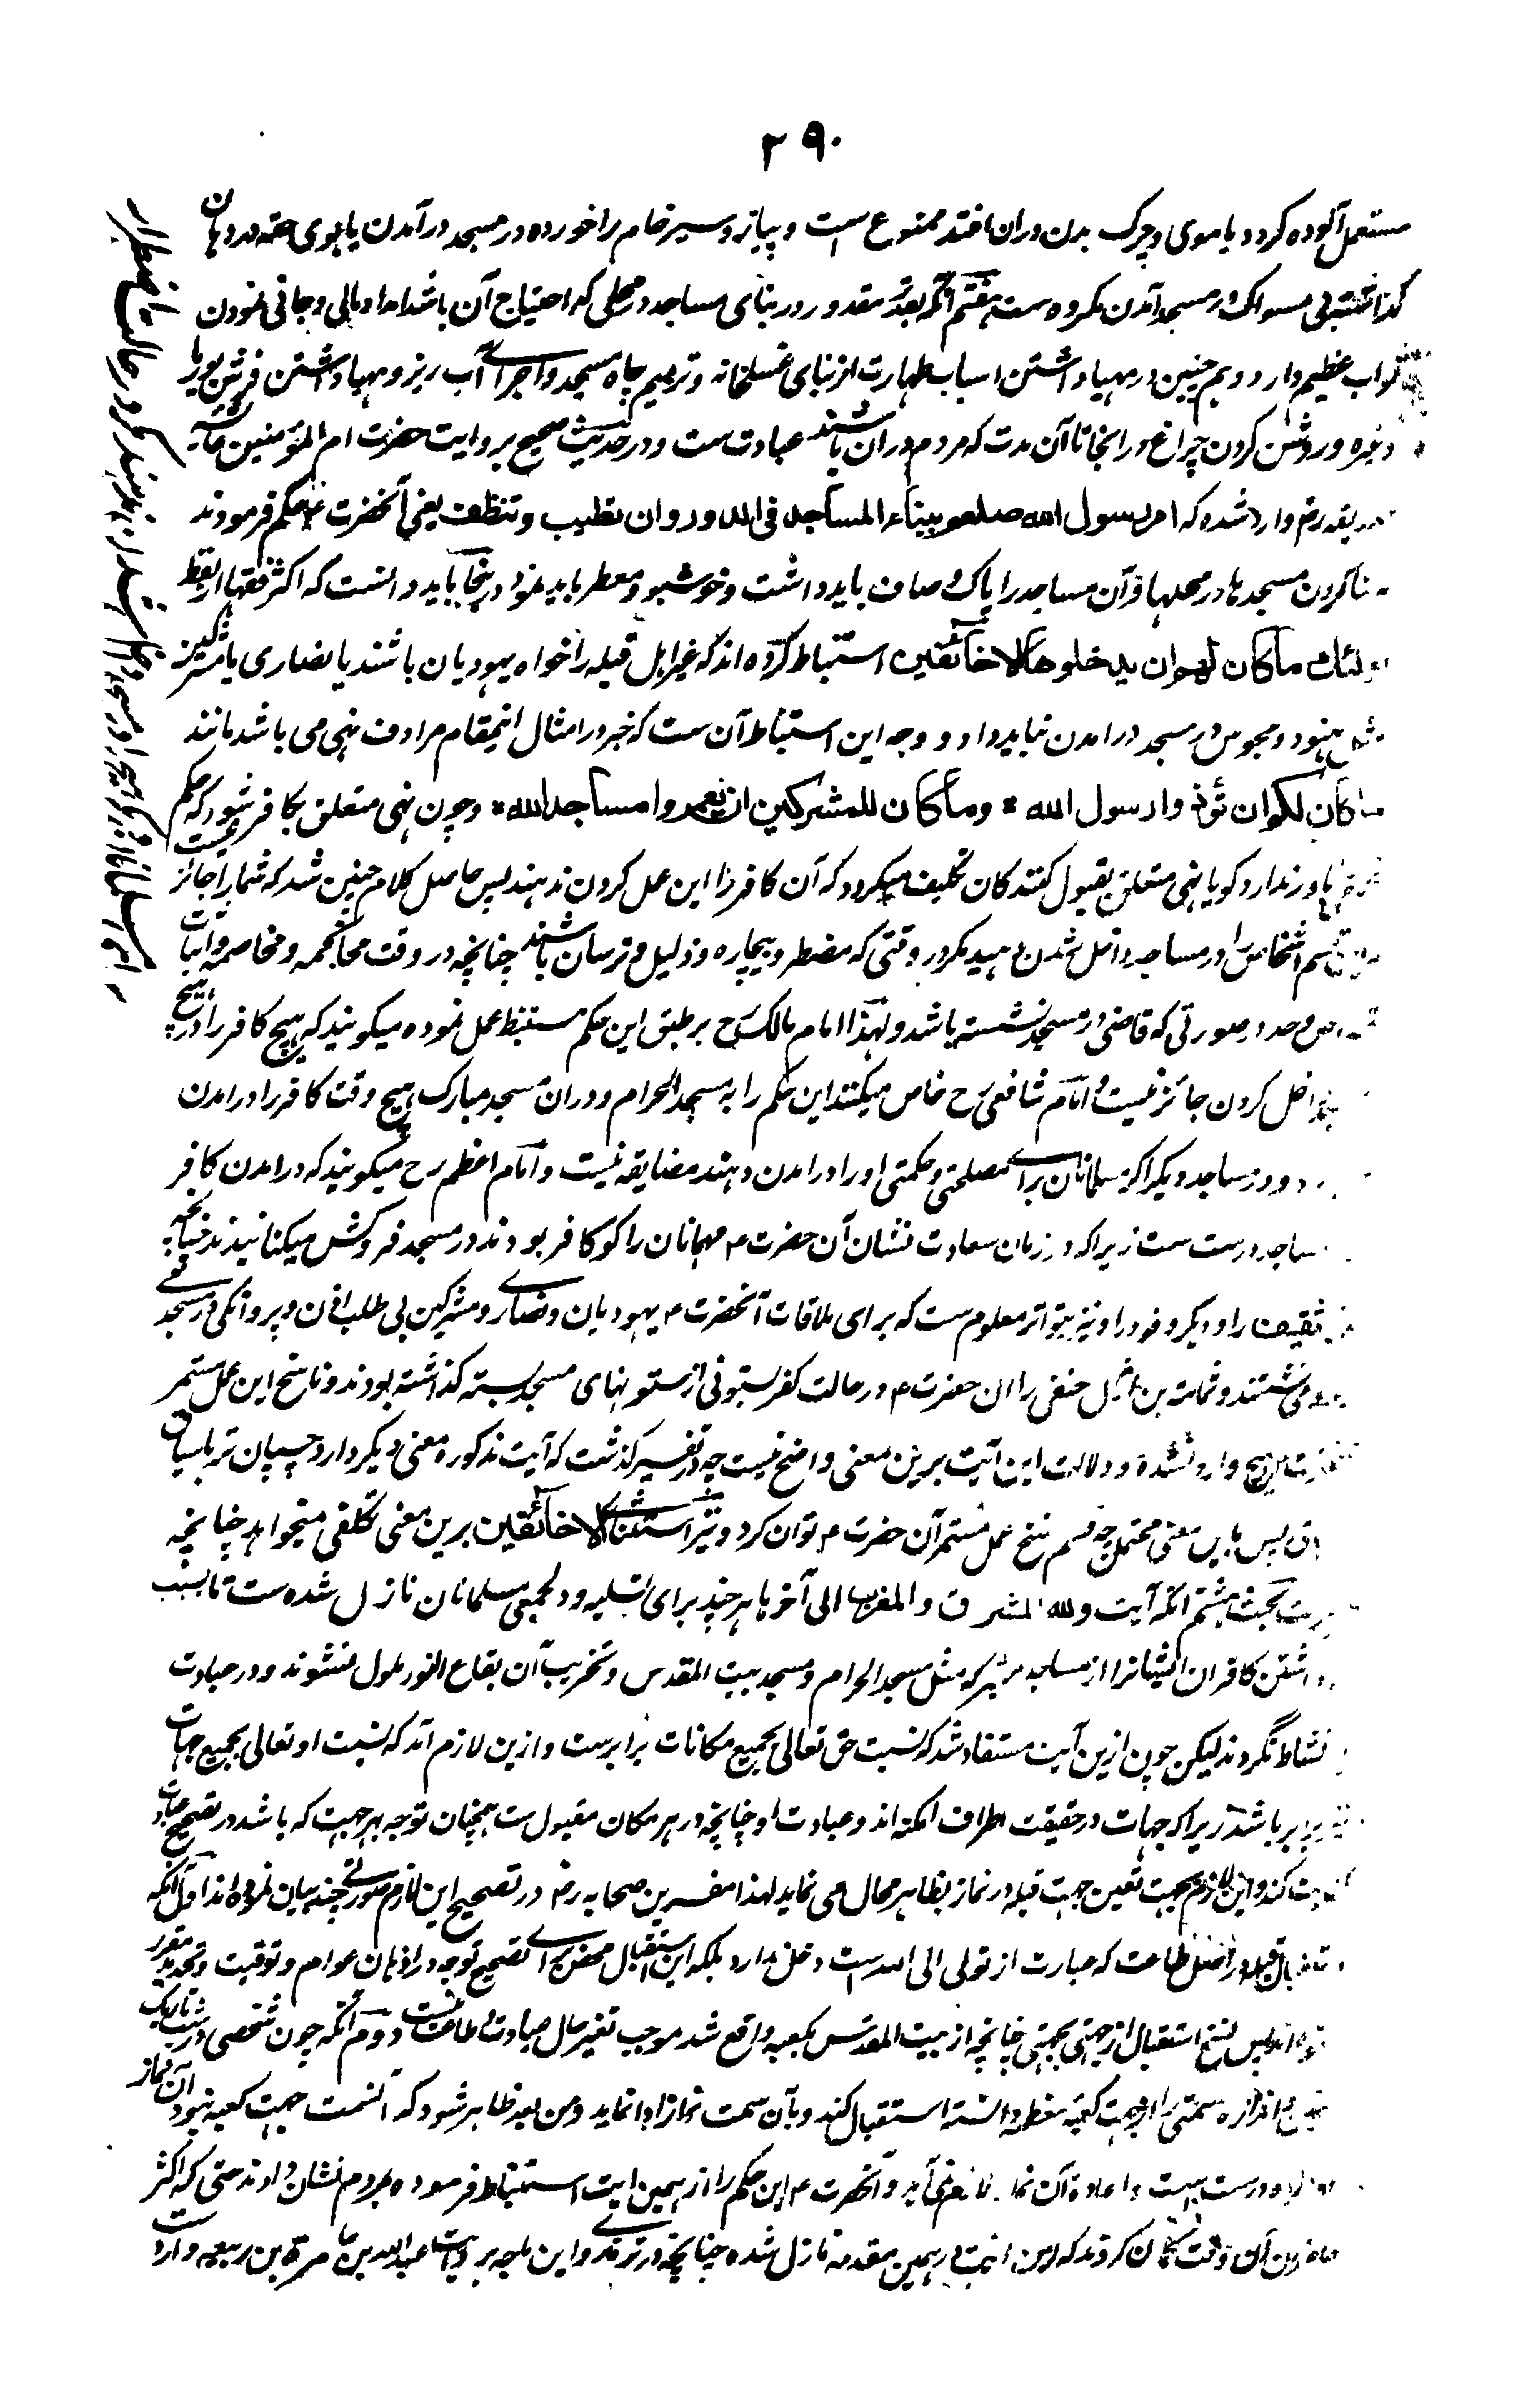 ۲۹۰
مستعمل آلوده کردد یا موی و چرک بدن دران افتد ممنوع است و پیاز و سیر خام را خورده در مسجد در آمدن یا بوی حقه در دهان
مسواک در مسجد آمدن مکروه ست هفتم آنکه بقدر مقدور در بنای مساجد در محلی که احتیاج آن باشد امداد مالی و جانی نمودن
ثواب عظیم دارد و همچنین در مهیا داشتن اسباب طهارت از بنای غسلخانه و ترمیم چاه مسجد و اجرای آب ریز و مهیا داشتن فرش بوریا
و غیره و روشن کردن چراغ در انجا تا آن مدت که مردم دران باشند عبادت ست و در حدیث صحیح بروایت حضرت ام المؤمنین عائشه
صدیقه رض وارد شده که امر رسول الله صلعم ببناء المساجد فی الدور وان تطیب و تنظف یعنی آنحضرت ۴ حکم فرمودند
بنا کردن مسجد ها در محلها و آن مساجد را پاک و صاف باید داشت و خوشبو و معطر باید نمود درینجا باید دانست که اکثر فقها از لفظ
اولئک ما کان لهم ان یدخلوها الا خائفین استنباط کرده اند که غیر اهل قبله را خواه یهودیان باشند یا نصاری یا مشرکین
مثل هنود و مجوس در مسجد در امدن نباید داد و وجه این استنباط آن ست که خبر در امثال اینمقام مرادف نهی می باشد مانند
ما کان لکم ان تؤذوا رسول الله * وما کان للمشرکین ان یعمروا مساجد الله * و چون نهی متعلق بکافر شود که حکم
باور ندارد کویا نهی متعلق بقبول کنندکان تکلیف میکردد که آن کافر را این عمل کردن ندهند پس حاصل کلام چنین شد که شما را جائز نیست
که این قسم اشخاص را در مساجد داخل شدن بدهید مکر در وقتی که مضطر و بیچاره و ذلیل و ترسان باشند چنانچه در وقت محاکمه و مخاصمه و اثبات
و حد در صورتی که قاضی در مسجد نشسته باشد و لهذا امام مالک رح بر طبق این حکم مستنبط عمل نموده میکویند که هیچ کافر را در هیچ
داخل کردن جائز نیست و امام شافعی رح خاص میکنند این حکم را به مسجد الحرام و دران مسجد مبارک هیچ وقت کافر را در امدن
و در مساجد دیکر اکر مسلمانان برای مصلحتی و حکمتی او را در امدن دهند مضایقه نیست و امام اعظم رح میکویند که در امدن کافر
مساجد درست ست زیرا که در زمان سعادت نشان آن حضرت ۴ مهمانان را کو کافر بودند در مسجد فروکش میکنانیدند چنانچه
ثقیف را و دیکر وفود را و نیز بتواتر معلوم ست که برای ملاقات آنحضرت ۴ یهودیان و نصارای و مشرکین بی طلب اذن و پروانکی در مسجد
می نشستند و ثمامة بن اثال حنفی را ان حضرت ۴ در حالت کفر بستونی از ستونهای مسجد بسته کذاشته بودند و ناسخ این عمل مستمر
صریح وارد نشده و دلالت این آیت برین معنی واضح نیست چه در تفسیر کذشت که آیت مذکوره معنی دیکر دارد چسپان تر با سیاق
پس باین معنی محتمل چه قسم نسخ عمل مستمر آن حضرت ۴ توان کرد و نیز استثنای الا خائفین برین معنی تکلفی میخواهد چنانچه
بحث هشتم آنکه آیت و لله المشرق و المغرب الی آخرها هر چند برای تسلیه و دلجمعی مسلمانان نازل شده ست تا بسبب
داشتن کافران ایشانرا از مساجد متبرکه مثل مسجد الحرام و مسجد بیت المقدس و تخریب آن بقاع النور ملول نشوند و در عبادت
نشاط نگردند لیکن چون ازین آیت مستفاد شد که نسبت حق تعالی بجمیع مکانات برابرست و ازین لازم آمد که نسبت او تعالی بجمیع جهات
نیز برابر باشد زیرا که جهات در حقیقت اطراف امکنه اند و عبادت او چنانچه در هر مکان مقبول ست همچنان توجه بهر جهت که باشد در تصحیح عبادت
کفایت کند و این لازم بجهت تعین جهت قبله در نماز بظاهر محال می نماید لهذا مفسرین صحابه رض در تصحیح این لازم صورتی چند بیان نموده اند اول آنکه
استقبال قبله در اصل طاعت که عبارت از تولی الی الله است دخل ندارد بلکه این استقبال محض برای تصحیح توجه در اذهان عوام و توقیت و تحدید مقرر
پس نسخ استقبال از جهتی بجهتی چنانچه از بیت المقدس بکعبه واقع شد موجب تغیر حال عبادت و طاعت نیست دوم آنکه چون شخصی در شب تاریک
اندازه سمتی را جهت کعبه معظمه دانسته استقبال کند و بآن سمت نماز ادا نماید و من بعد ظاهر شود که آنسمت جهت کعبه نبود آن نماز
درست ست و اعادۀ آن نماز لازم نمی آید و آنحضرت ۴ این حکم را از همین ایت استنباط فرموده بمردم نشان دادند حتی که اکثر
حاضران آن وقت کمان کردند که این ایت در همین مقدمه نازل شده چنانچه در ترمذی و ابن ماجه بروایت عبد الله بن عامر بن ربیعه وارد ست